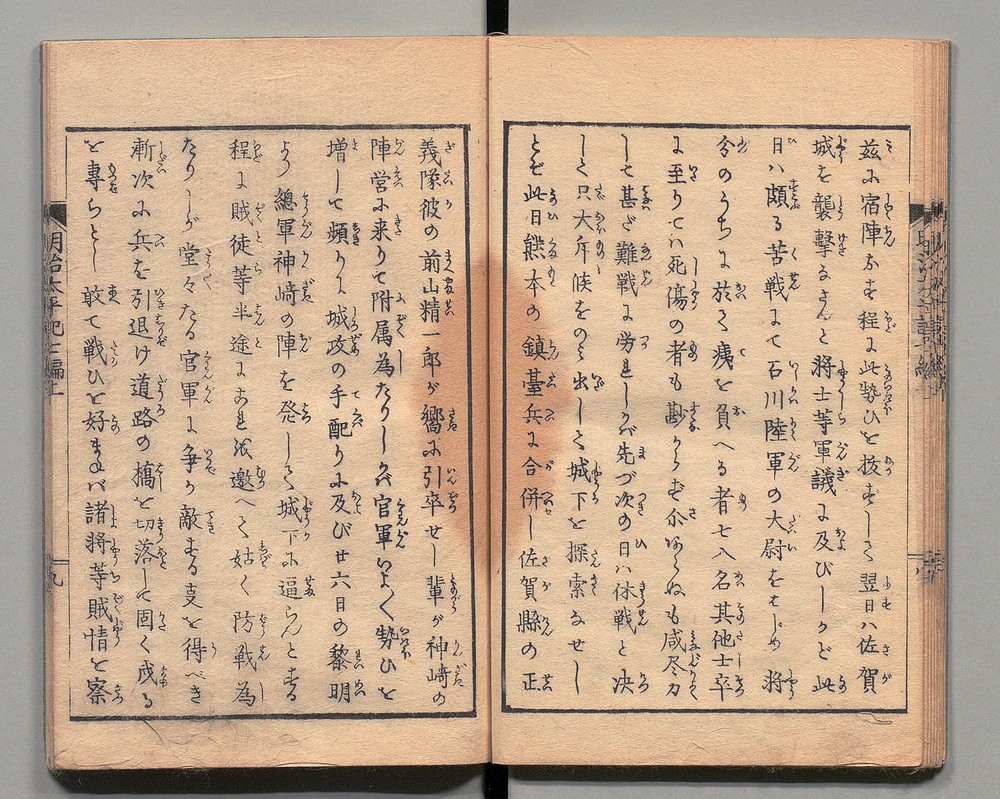 茲に宿陣なす程に此勢ひを抜すして翌日ハ佐賀
城を襲撃なさんと将士等軍議に及びしかど此
日ハ頗る苦戦にて石川陸軍の大尉をはじめ将
令のうちに於て痍を負へる者七八名其他士卒
に至りてハ死傷の者も尠からず尓のミならぬも咸尽力
して甚だ難戦に労れしかバ先づ次の日ハ休戦と决
して只大斥候をのミ出して城下を探索なせし
とぞ此日熊本の鎮臺兵に合併し佐賀縣の正
義隊彼の前山精一郎が嚮に引率せし輩が神﨑の
陣営に来りて附属為たりしかバ官軍いよ〱勢ひを
増して頻りに城攻の手配りに及び廿六日の黎明
より總軍神﨑の陣を発して城下に逼らんとする
程に賊徒等半途にこれを邀へて姑く防戦為
たりしが堂々たる官軍に争か敵する事を得べき
漸次に兵を引退け道路の橋を切落して固く戍る
を專らとし敢て戦ひを好まねバ諸将等賊情を察
明治太平記七編上
九